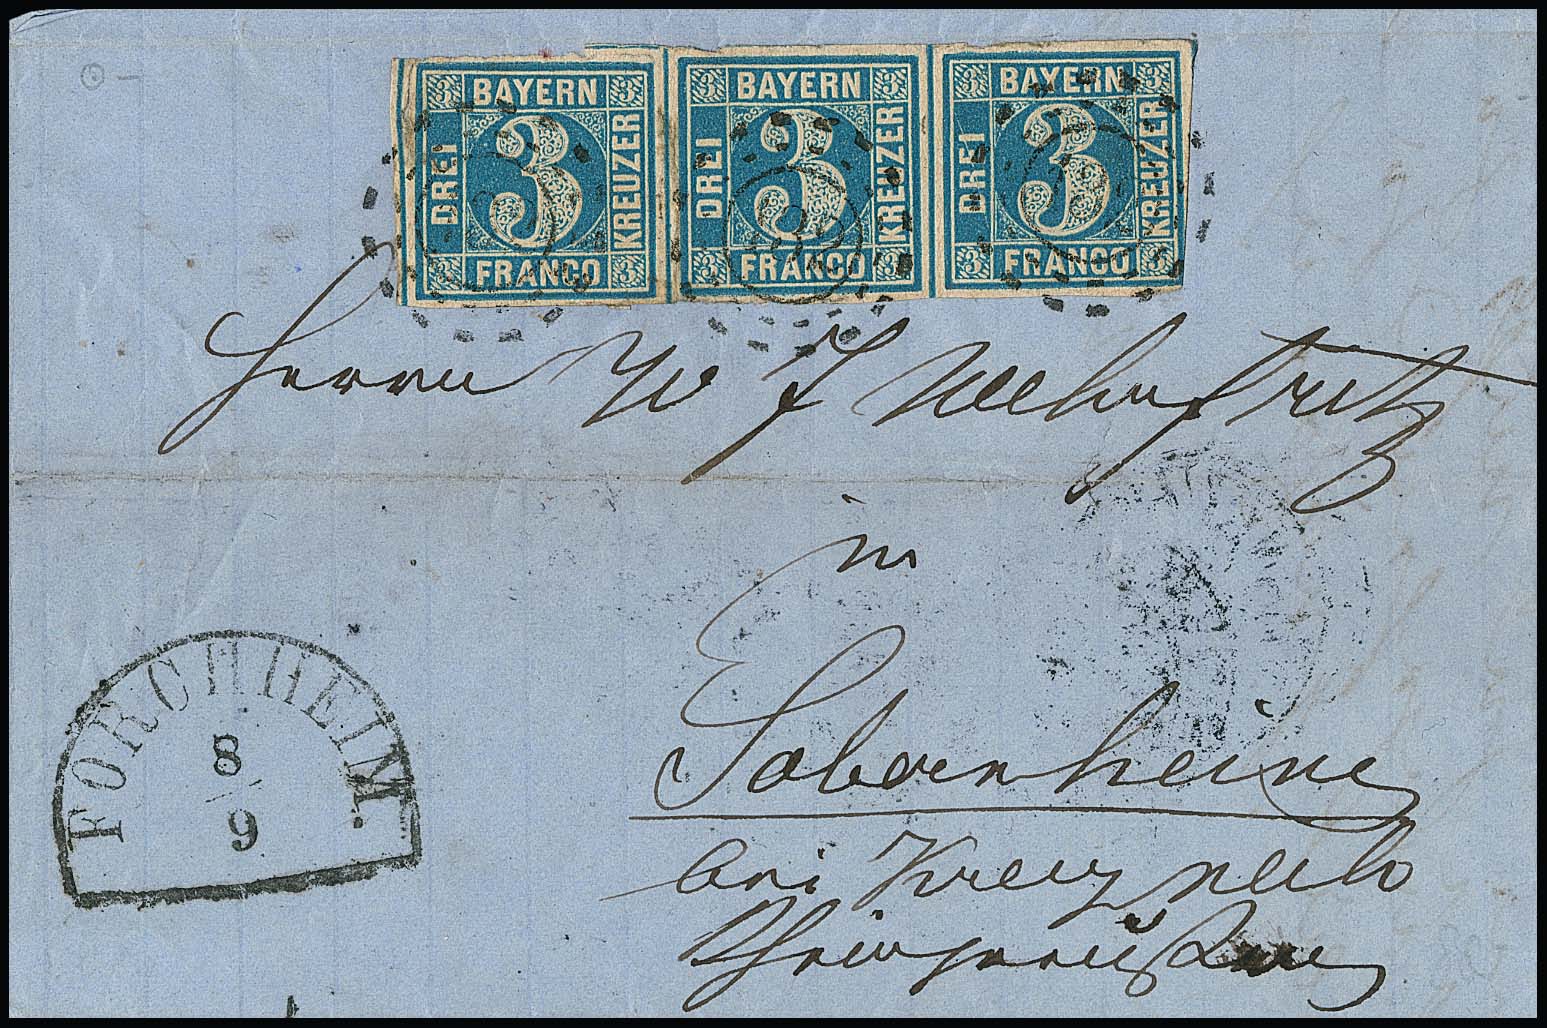 3 BAYERN 3
DREI 3 KREUZER
3 FRANCO 3
3 BAYERN 3
DREI 3 KREUZER
3 FRANCO 3
3 BAYERN 3
DREI 3 KREUZER
3 FRANCO 3
Herrn J
in
Sobernheim
bei Kreuznach
Rheinpreußen
FORCHHEIM.
8
9